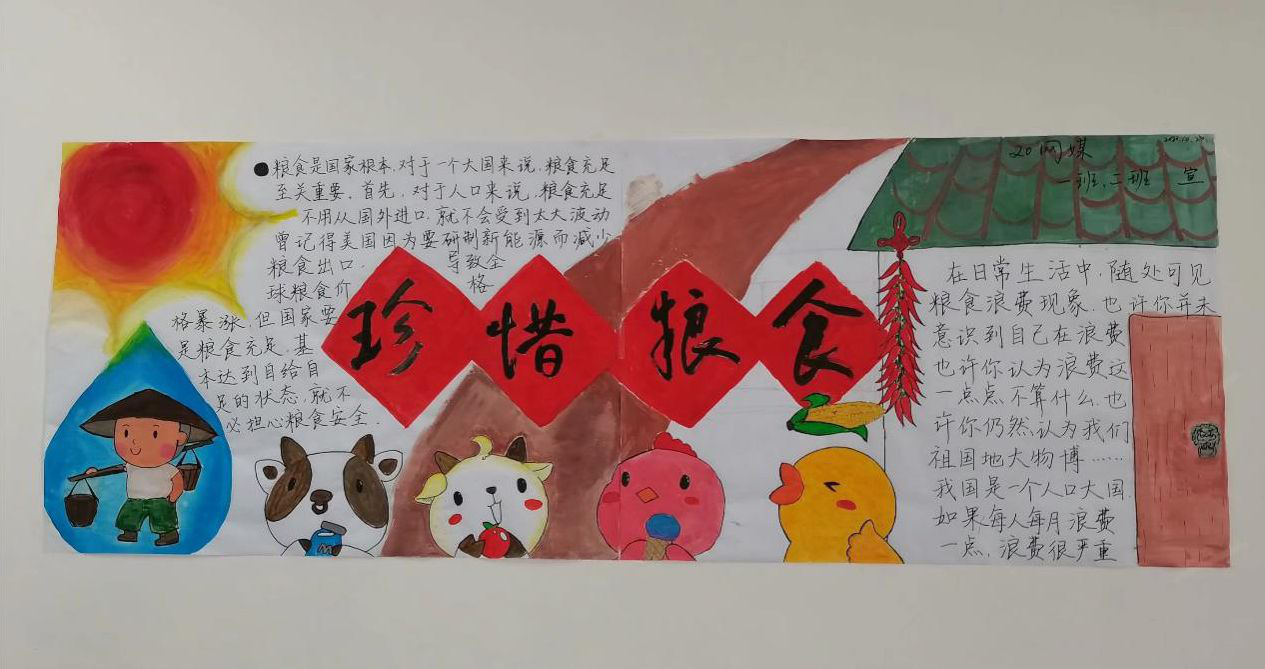 粮食是国家根本,对于一个大国来说,粮食充足
至关重要。首先,对于人口来说,粮食充足
不用从国外进口,就不会受到太大波动
曾记得美国因为要研制新能源而减少
粮食出口,导致全
球粮食价格
格暴涨,但国家要
是粮食充足,基
本达到自给自
足的状态,就不
必担心粮食安全.
珍惜粮食
20网媒
一班、二班 宣
在日常生活中,随处可见
粮食浪费现象,也许你并未
意识到自己在浪费
也许你认为浪费这
一点点不算什么,也
许你仍然认为我们
祖国地大物博……
我国是一个人口大国,
如果每人每月浪费
一点,浪费很严重